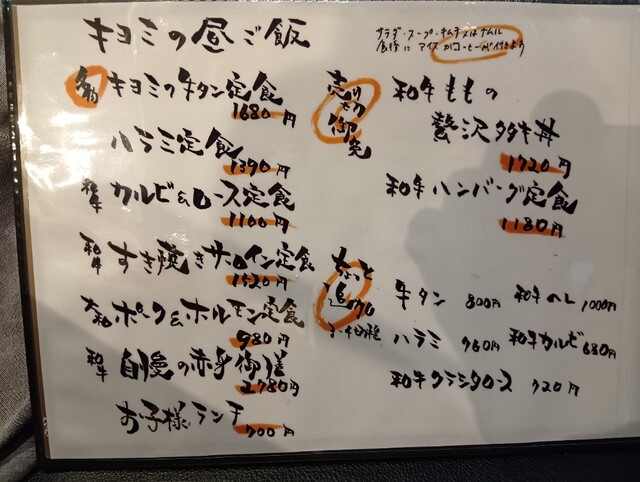 キヨミの昼ご飯
サラダ・スープ・キムチ又はナムル
食後に アイス かコーヒーが付きます
名物 キヨミの牛タン定食
1680円
ハラミ定食
1390円
和牛 カルビ&ロース定食
1100円
和牛 すき焼きサーロイン定食
1420円
大和ポーク&ホルモン定食
980円
和牛 自慢の赤身御膳
2780円
お子様ランチ
700円
売り切れ御免
和牛ももの
贅沢タタキ丼
1720円
和牛ハンバーグ定食
1180円
ちょっと追加
牛タン 800円 和牛ヘレ 1000円
ハラミ 760円 和牛カルビ 680円
和牛クラシタロース 720円